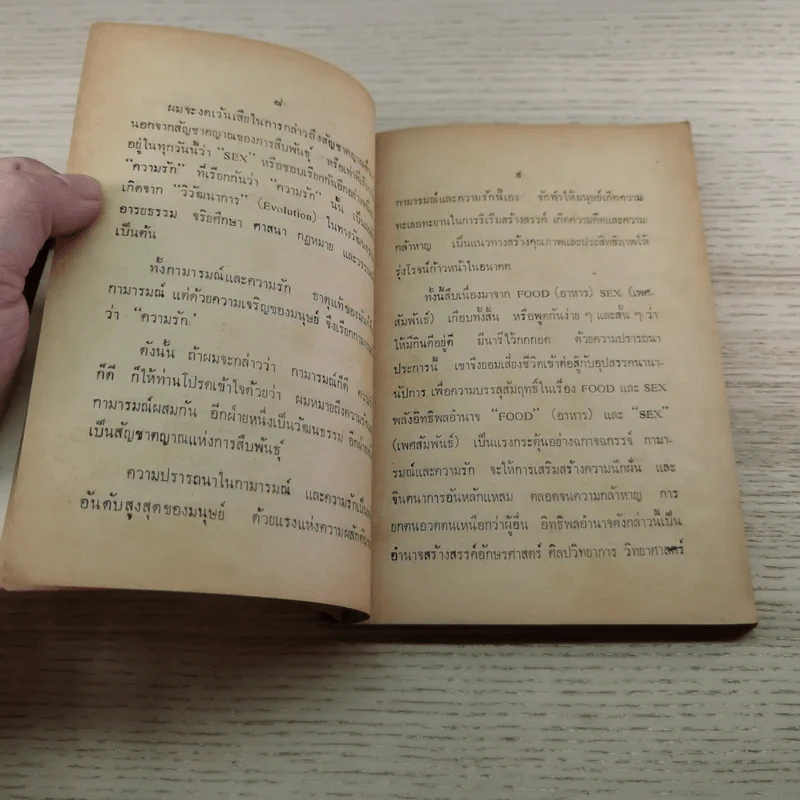 ผมจะงดเว้นเสียในการกล่าวถึงสัญชาตญาณ
นอกจากสัญชาตญาณของการสืบพันธุ์ หรือเท่าที่เรียก
อยู่ในทุกวันนี้ว่า “SEX” หรือชอบเรียกกันอีกอย่างหนึ่ง
“ความรัก” ที่เรียกกันว่า “ความรัก” นั้น เป็น
เกิดจาก “วิวัฒนาการ” (Evolution) ในทางวัฒนธรรม
อารยธรรม จริยศึกษา ศาสนา กฎหมาย และวรรณ
เป็นต้น
ทั้งกามารมณ์และความรัก ธาตุแท้ของมัน
กามารมณ์ แต่ด้วยความเจริญของมนุษย์ จึงเรียกกาม
ว่า “ความรัก”
ดังนั้น ถ้าผมจะกล่าวว่า กามารมณ์ก็ดี ความ
ก็ดี ก็ให้ท่านโปรดเข้าใจด้วยว่า ผมหมายถึงความรัก
กามารมณ์ผสมกัน อีกฝ่ายหนึ่งเป็นวัฒนธรรม อีกฝ่าย
เป็นสัญชาตญาณแห่งการสืบพันธุ์
ความปรารถนาในกามารมณ์ และความรักเป็น
อันดับสูงสุดของมนุษย์ ด้วยแรงแห่งความผลักดัน
กามารมณ์และความรักนี้เอง จักทำให้มนุษย์เกิดความ
ทะเยอทะยานในการริเริ่มสร้างสรรค์ เกิดความคิดและความ
กล้าหาญ เป็นแนวทางสร้างคุณภาพและประสิทธิภาพให้
รุ่งโรจน์ก้าวหน้าในอนาคต
ทั้งนี้สืบเนื่องมาจาก FOOD (อาหาร) SEX (เพศ-
สัมพันธ์) เกือบทั้งสิ้น หรือพูดกันง่าย ๆ และสั้น ๆ ว่า
ให้มีกินดีอยู่ดี มีนารีไว้กกกอด ด้วยความปรารถนา
ประการนี้ เขาจึงยอมเสี่ยงชีวิตเข้าต่อสู้กับอุปสรรคนานา-
นัปการ เพื่อความบรรลุสัมฤทธิ์ในเรื่อง FOOD และ SEX
พลังอิทธิพลอำนาจ “FOOD” (อาหาร) และ “SEX”
(เพศสัมพันธ์) เป็นแรงกระตุ้นอย่างฉกาจฉกรรจ์ กามา-
รมณ์และความรัก จะให้การเสริมสร้างความนึกฝัน และ
จินตนาการอันหลักแหลม ตลอดจนความกล้าหาญ การ
ยกตนอวดตนเหนือกว่าผู้อื่น อิทธิพลอำนาจดังกล่าวนี้เป็น
อำนาจสร้างสรรค์อักษรศาสตร์ ศิลปวิทยาการ วิทยาศาสตร์